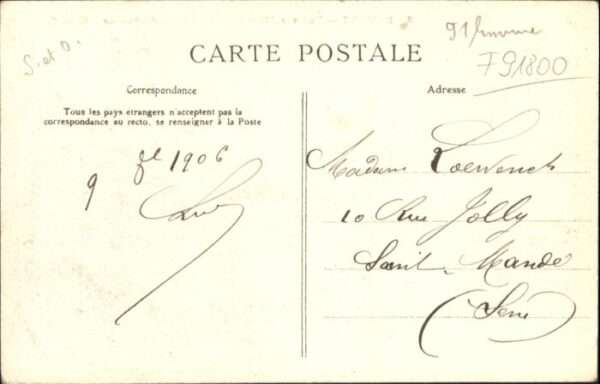 S. et O.
91
F91800
CARTE POSTALE
Correspondance
Adresse
Tous les pays étrangers n'acceptent pas la
correspondance au recto, se renseigner à la Poste
9 1906
Madame
10 Rue Jolly
Saint-Mandé
(Seine)